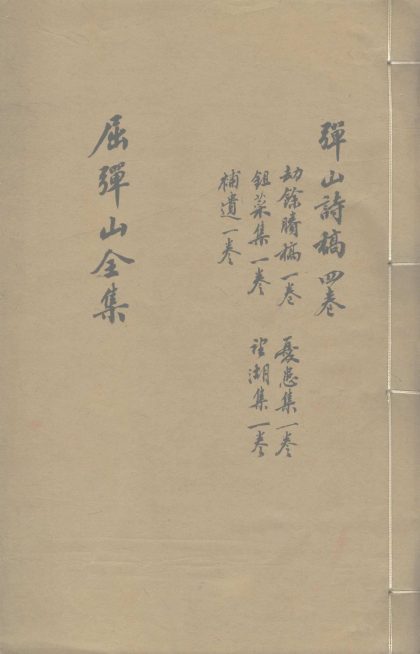 彈山詩稿四卷
劫餘賸稿一卷
憂患集一卷
鉏菜集一卷
望湖集一卷
補遺一卷
屈彈山全集